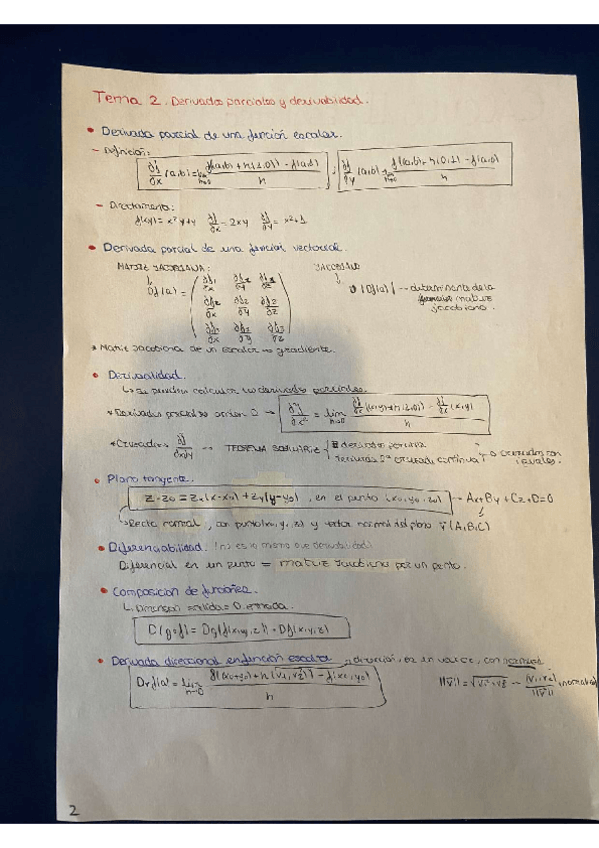 Tema 2. Derivadas parciales y derivabilidad.
• Derivada parcial de una función escalar.
- Definición:
∂f/∂x (a,b) = lim h→0 f((a,b)+h(1,0)) - f(a,b) / h ; ∂f/∂y (a,b) = lim h→0 f((a,b)+h(0,1)) - f(a,b) / h
- Directamente:
f(x,y) = x²y+y ∂f/∂x = 2xy ∂f/∂y = x²+1
• Derivada parcial de una función vectorial.
MATRIZ JACOBIANA: JACOBIANO
Df(a) = ( ∂f1/∂x ∂f1/∂y ∂f1/∂z
∂f2/∂x ∂f2/∂y ∂f2/∂z
∂f3/∂x ∂f3/∂y ∂f3/∂z )
|Df(a)| → determinante de la
matriz
jacobiana.
* Matriz Jacobiana de un escalar → gradiente.
• Derivabilidad.
↳ Se pueden calcular las derivadas parciales.
* Derivadas parciales orden 2 → ∂²f/∂x² = lim h→0 ∂f/∂x ((x,y)+h(1,0)) - ∂f/∂x (x,y) / h
* Cruzadas → TEOREMA SCHWARZ { derivadas parciales
derivada 2ª cruzada continua } → cruzadas son
iguales.
• Plano tangente.
z-z0 = zx(x-x0) + zy(y-y0), en el punto (x0,y0,z0) → Ax+By+Cz+D=0
↳ Recta normal, con punto (x,y,z) y vector normal del plano v(A,B,C)
• Diferenciabilidad. (no es lo mismo que derivabilidad)
Diferencial en un punto = matriz Jacobiana por un punto.
• Composición de funciones.
↳ Dimensión salida = D. entrada.
D(g∘f) = Dg(f(x,y,z)) · Df(x,y,z)
• Derivada direccional en función escalar → dirección, es un vector, con norma 1.
Dvf(a) = lim h→0 f((x0,y0)+h(v1,v2)) - f(x0,y0) / h ||v|| = √v1²+v2² → (v1,v2)/||v||
2